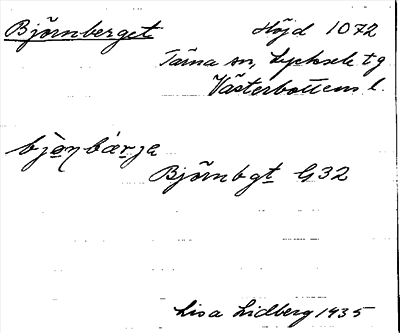 Björnberget Höjd 1072
Tärna sn, Lycksele tg
Västerbottens l.
Björnbgt G32
Lisa Lidberg 1935